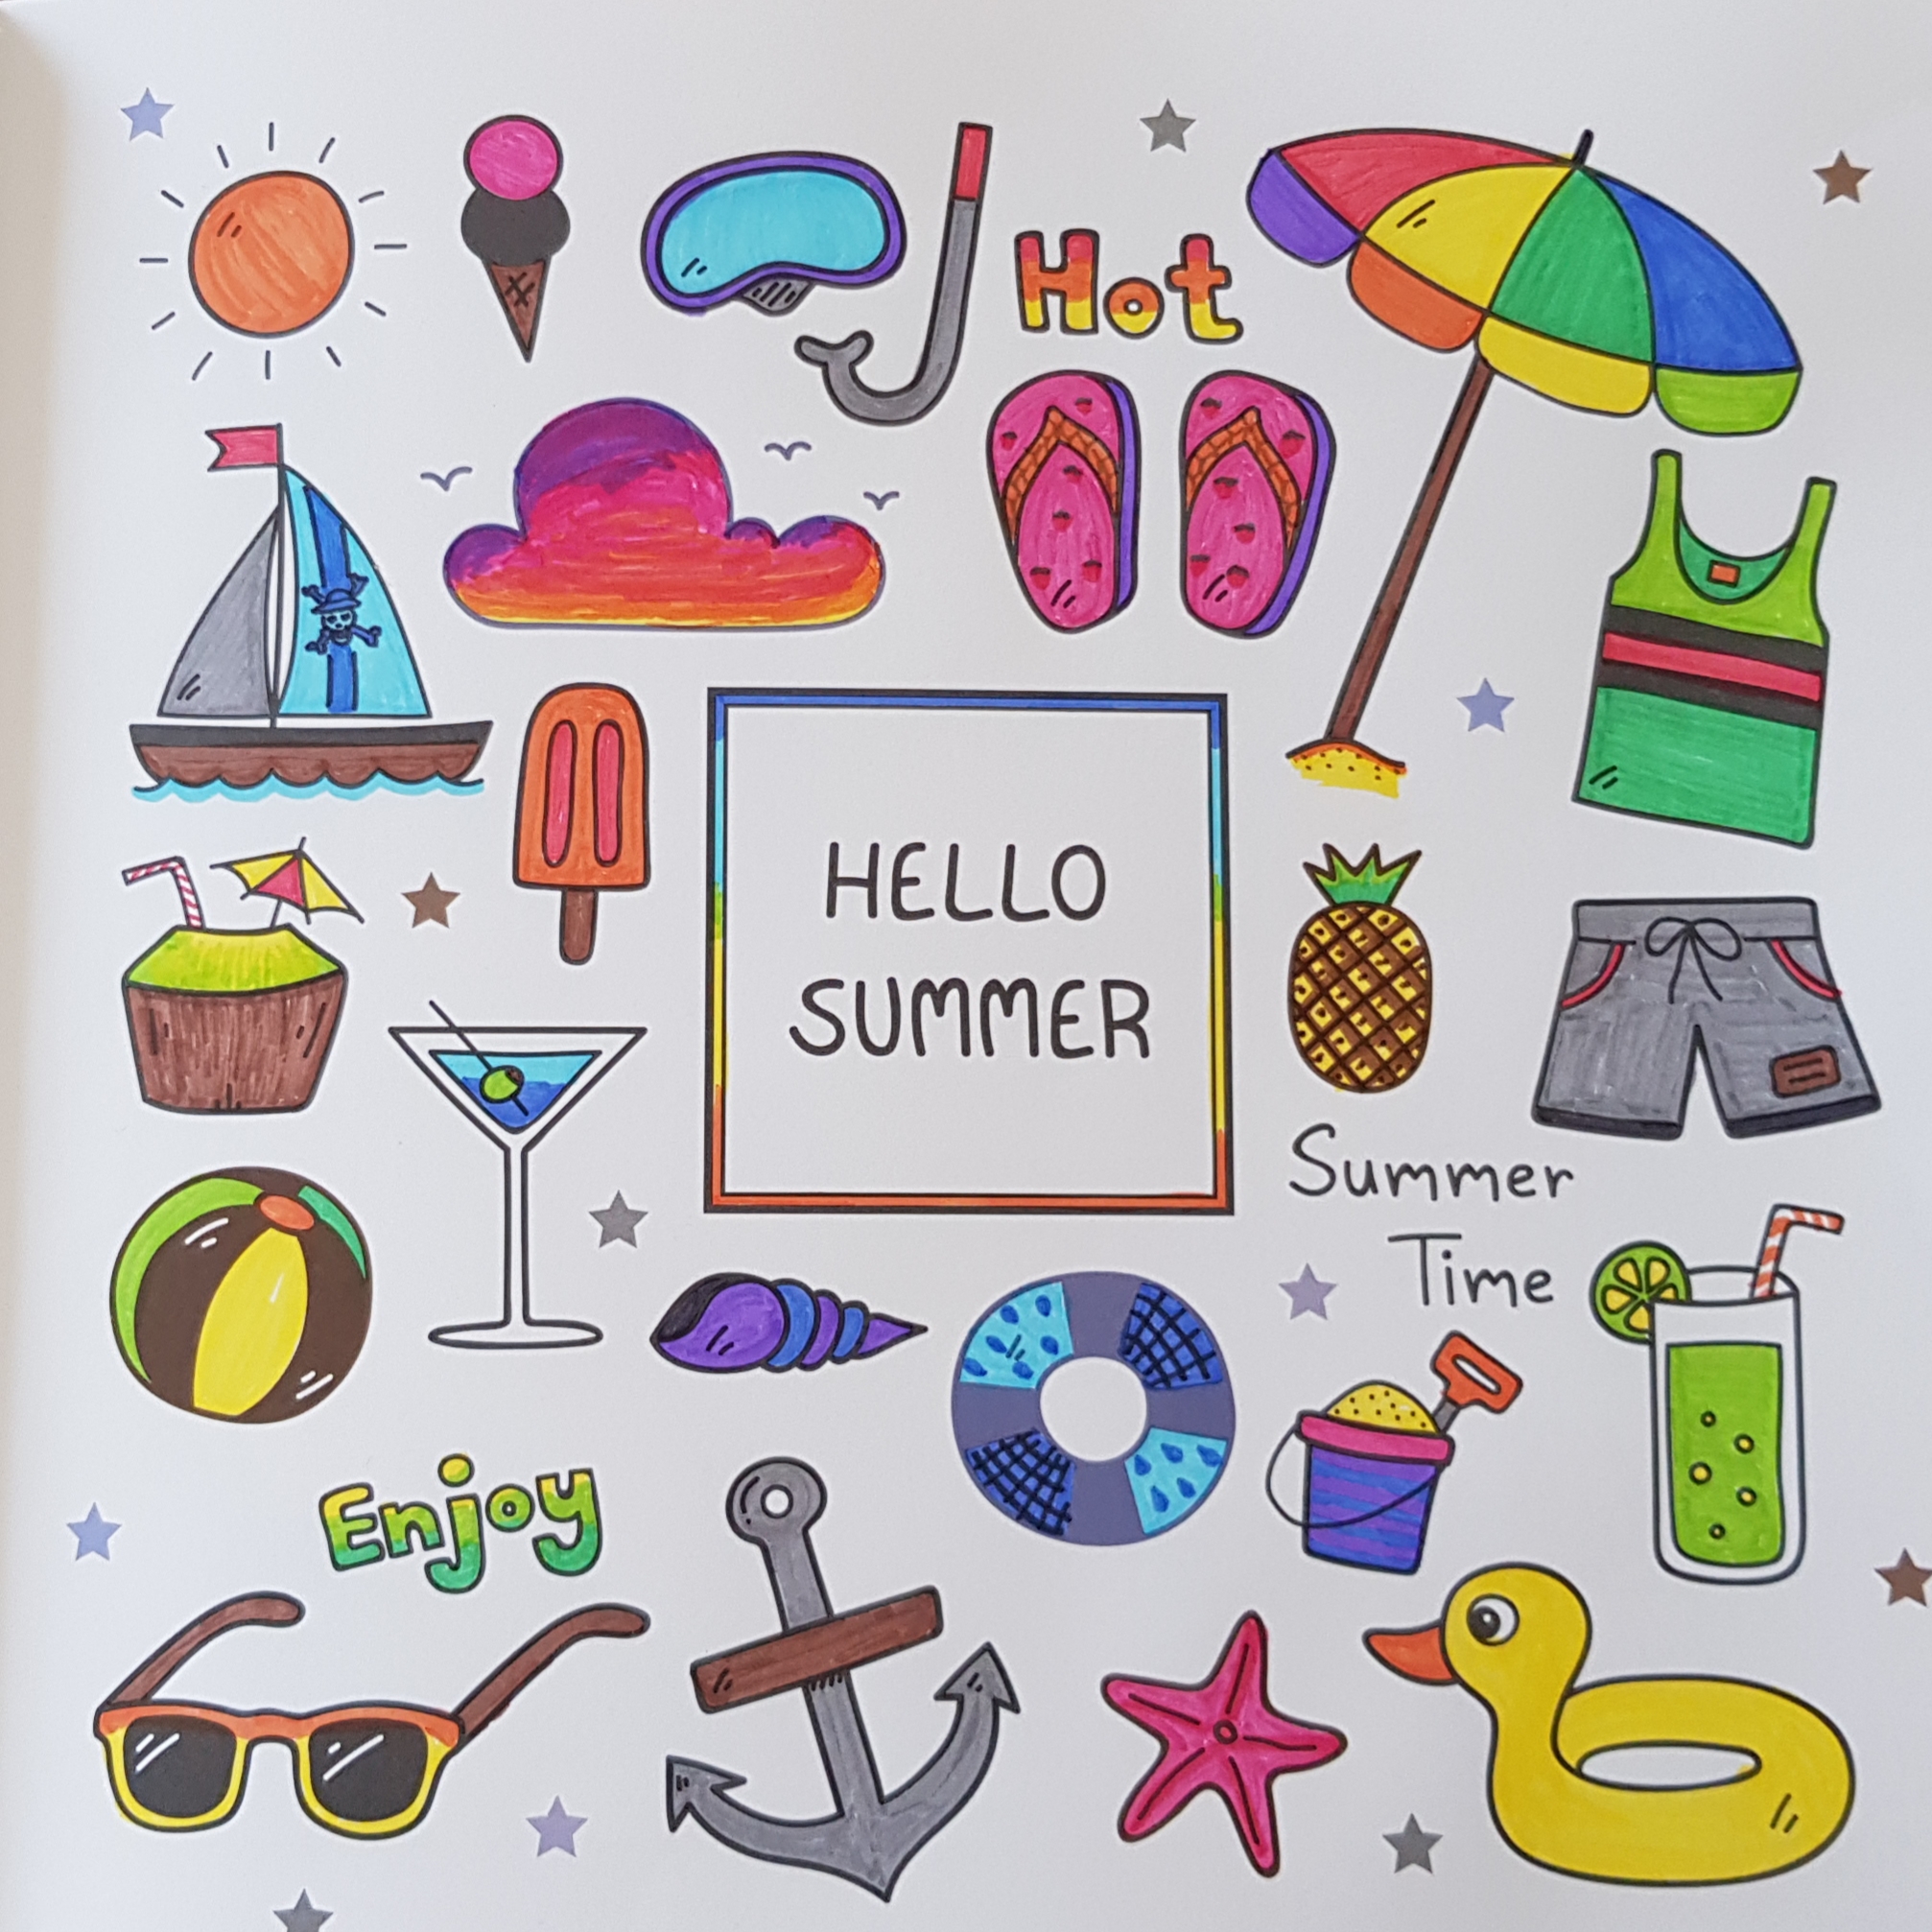 Hot
HELLO
SUMMER
Summer
Time
Enjoy